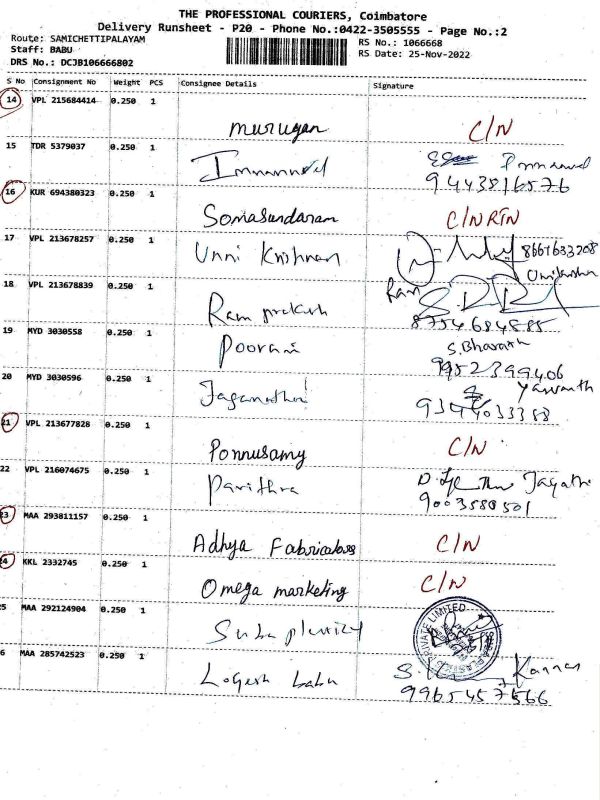 THE PROFESSIONAL COURIERS, Coimbatore
Delivery Runsheet - P20 - Phone No.:0422-3505555 - Page No.:2
Route: SAMICHETTIPALAYAM RS No.: 1066668
Staff: BABU RS Date: 25-Nov-2022
DRS No.: DCJB106666802
S No Consignment No Weight PCS Consignee Details Signature
14 VPL 215684414 0.250 1
murugan C/N
15 TDR 5379037 0.250 1
9443816576
16 KUR 694380323 0.250 1
Somasundaram C/N RTN
17 VPL 213678257 0.250 1
Unni Krishnan 8667633208
18 VPL 213678839 0.250 1 Ram
Ram prakash 8754684885
19 MYD 3030558 0.250 1
Poorani S. Bharath
9952399406
20 MYD 3030596 0.250 1 Yaswanth
9344033388
21 VPL 213677828 0.250 1
Ponnusamy C/N
22 VPL 216074675 0.250 1
Pavithra
9003580501
23 MAA 293811157 0.250 1
Adhya Fabricators C/N
24 KKL 2332745 0.250 1
Omega marketing C/N
5 MAA 292124904 0.250 1
PRIVATE LIMITED
6 MAA 285742523 0.250 1
Logesh babu Kannan
9965457566